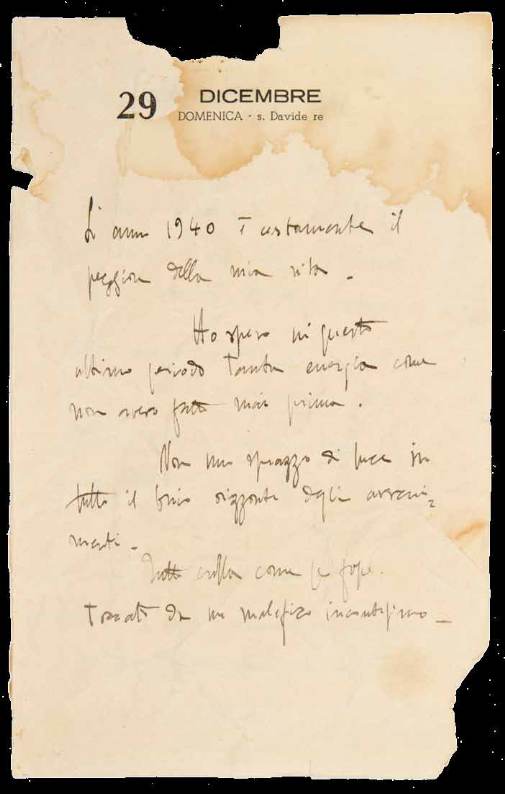 29 DICEMBRE
DOMENICA - s. Davide re
anno 1940 è certamente il
peggiore della mia vita.
Ho speso in questo
ultimo periodo tanta energia come
non avevo fatto mai prima.
Non uno sprazzo di luce in
tutto il buio orizzonte degli avveni=
menti.
Tutto crolla come se fosse
toccato da un malefico incantesimo